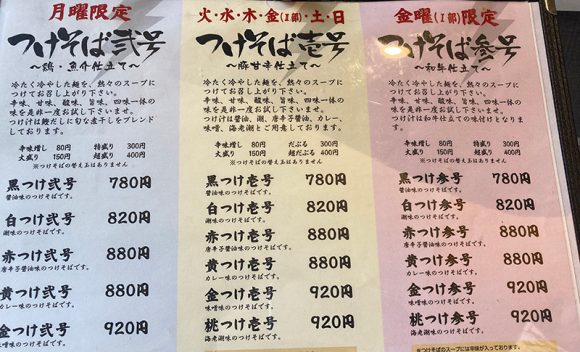 月曜限定
つけそば弐号
～鶏・魚介仕立て～
冷たく冷やした麺を、熱々のスープに
つけてお召し上がり下さい。
辛味、甘味、酸味、旨味、四味一体の
味を是非一度お試し下さいませ。
つけ汁は鶏だしに旬な煮干しをブレンド
しております。
辛味増し 80円 特盛り 300円
大盛り 150円 超盛り 400円
※つけそばの替え玉はありません
黒つけ弐号 780円
醤油味のつけそばです。
白つけ弐号 820円
潮味のつけそばです。
赤つけ弐号 880円
唐辛子醤油味のつけそばです。
黄つけ弐号 880円
カレー味のつけそばです。
金つけ弐号 920円
味噌味のつけそばです。
火・水・木・金(Ⅰ部)・土・日
つけそば壱号
～豚甘辛仕立て～
冷たく冷やした麺を、熱々のスープに
つけてお召し上がり下さい。
辛味、甘味、酸味、旨味、四味一体の
味を是非一度お試し下さいませ。
つけ汁は醤油、潮、唐辛子醤油、カレー、
味噌、海老潮とご用意しております。
辛味増し 80円 だぶる 300円
大盛り 150円 超だぶる 400円
※つけそばの替え玉はありません
黒つけ壱号 780円
醤油味のつけそばです。
白つけ壱号 820円
潮味のつけそばです。
赤つけ壱号 880円
唐辛子醤油味のつけそばです。
黄つけ壱号 880円
カレー味のつけそばです。
金つけ壱号 920円
味噌味のつけそばです。
桃つけ壱号 920円
海老潮味のつけそばです。
金曜(Ⅰ部)限定
つけそば参号
～和牛仕立て～
冷たく冷やした麺を、熱々のスープに
つけてお召し上がり下さい。
辛味、甘味、酸味、旨味、四味一体の
味を是非一度お試し下さいませ。
つけ汁は和牛仕立ての味付けとなりま
す。
辛味増し 80円 特盛り 300円
大盛り 150円 超盛り 400円
※つけそばの替え玉はありません
黒つけ参号 780円
醤油味のつけそばです。
白つけ参号 820円
潮味のつけそばです。
赤つけ参号 880円
唐辛子醤油味のつけそばです。
黄つけ参号 880円
カレー味のつけそばです。
金つけ参号 920円
味噌味のつけそばです。
桃つけ参号 920円
海老潮味のつけそばです。
※つけそばのスープには辛味が入っております。